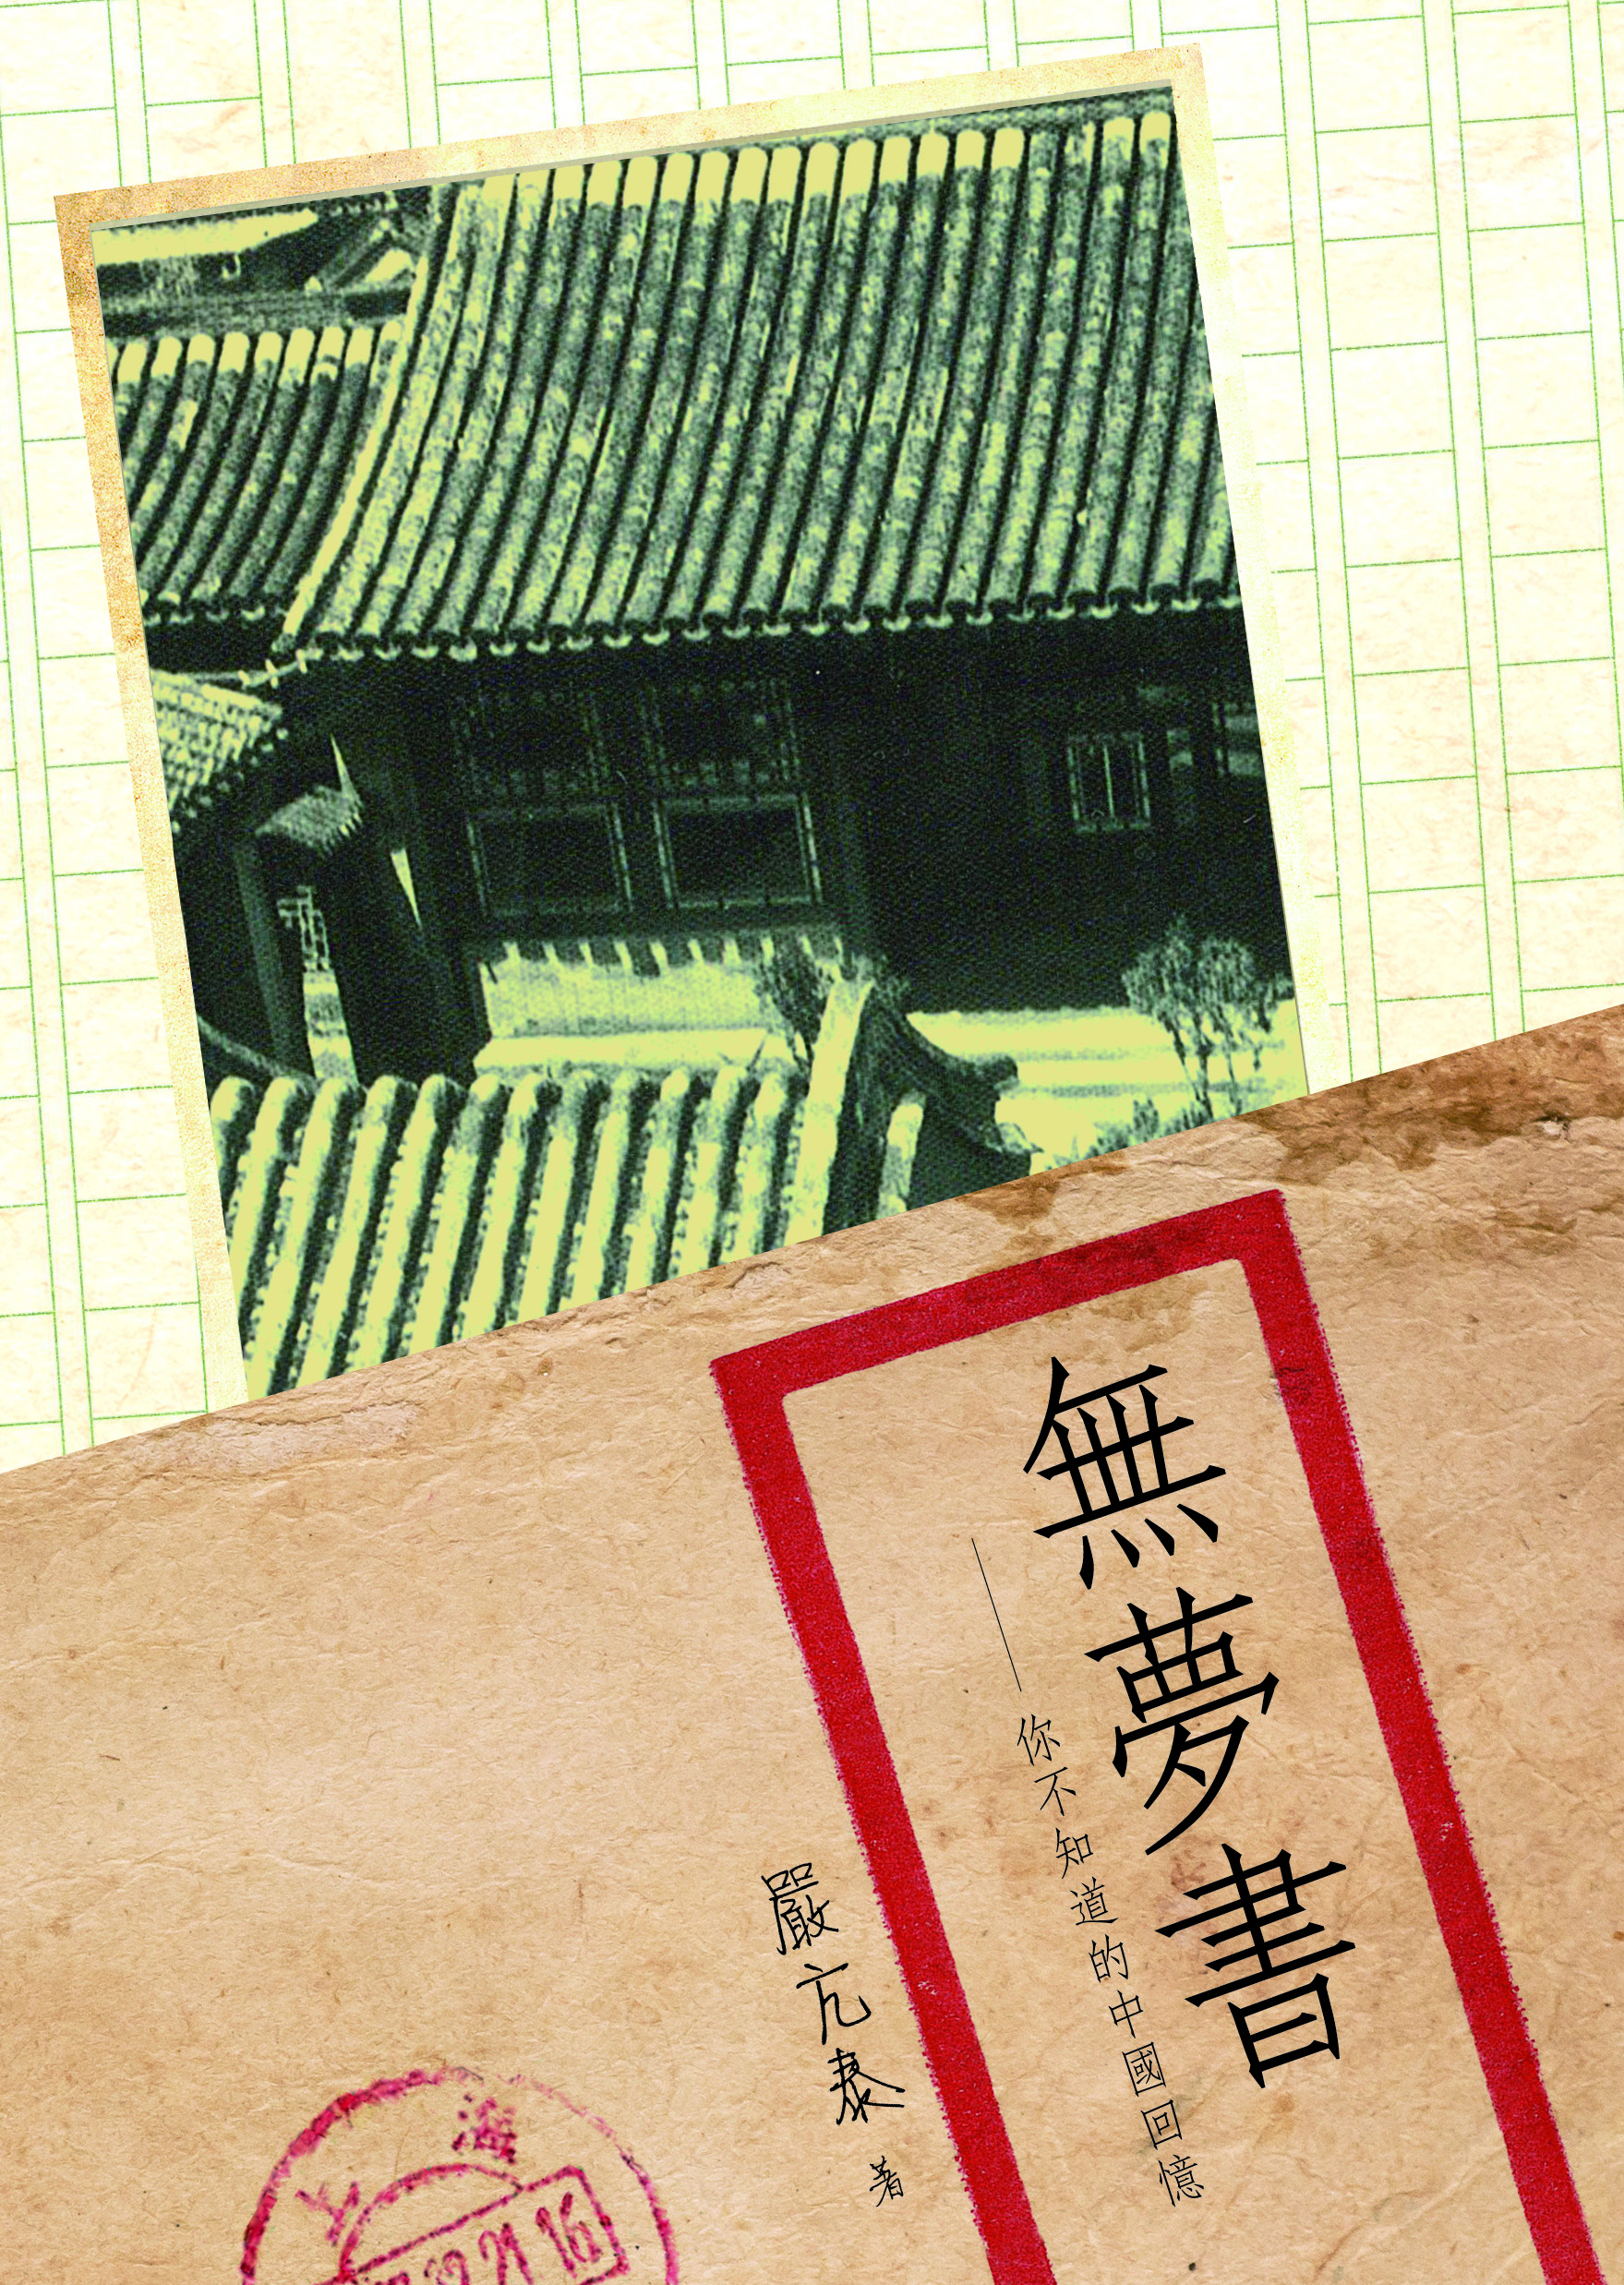 無夢書
——你不知道的中國回憶
嚴亢泰 著
上海
21 16